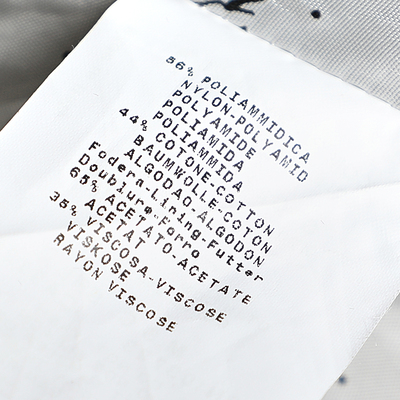 56% POLIAMMIDICA
NYLON-POLYAMID
POLYAMIDE
POLIAMIDA
POLIAMMIDA
44% COTONE-COTTON
BAUMWOLLE-COTON
ALGODAO-ALGODON
Fodera-Lining-Futter
Doublure-Forro
65% ACETATO-ACETATE
ACETAT
35% VISCOSA-VISCOSE
VISKOSE
RAYON VISCOSE